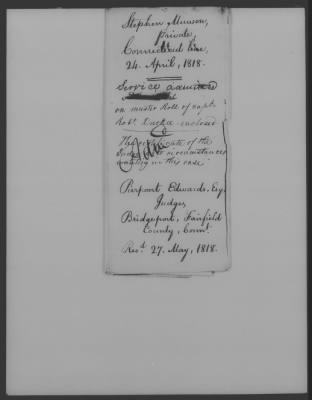 Stephen Munson,
Private,
Connecticut line,
24. April, 1818.
Service
on muster Roll of Capt.
Robt. enclosed
The certificate of the
Judge, as to circumstances
wanting in this case.
Pierpont Edwards, Esq.
Judge,
Bridgeport, Fairfield
County, Connt.
Recd. 27. May, 1818.